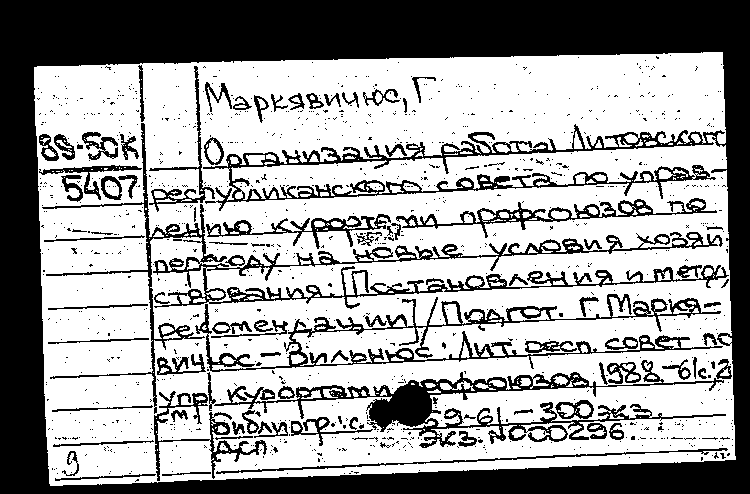 Маркявичюс, Г
89-50К
Организация работы Литовского
5407
республиканского совета по управ-
лению курортами профсоюзов по
переходу на новые условия хозяй
ствования: [Постановления и метод
рекомендации] / Подгот. Г. Маркя-
вичюс. - Вильнюс: Лит. респ. совет по
упр. курортами профсоюзов, 1988. - 61с.; 2
см
библиогр.: с. 59-61. - 300 экз.
Дсп. Экз. N000296.
9